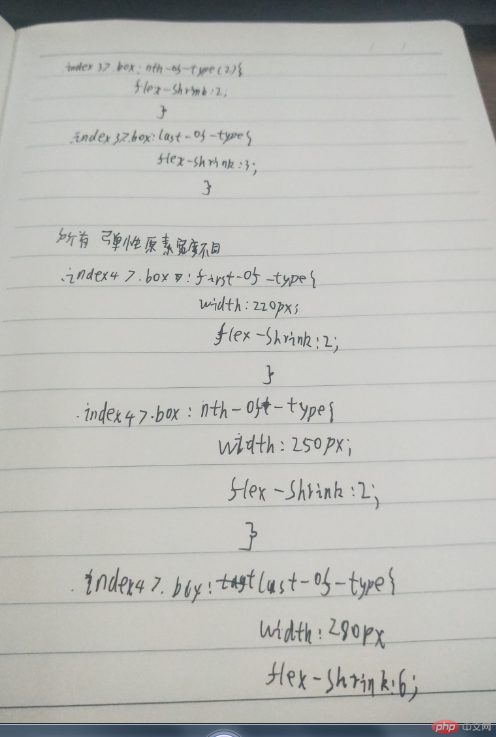 .index3>.box:nth-of-type(2){
flex-shrink:2;
}
.index3>.box:last-of-type{
flex-shrink:3;
}
所有弹性原素宽度不同
.index4>.box:first-of-type{
width:220px;
flex-shrink:2;
}
.index4>.box:nth-of-type{
width:250px;
flex-shrink:2;
}
.index4>.box:last-of-type{
width:280px
flex-shrink:6;
php 中文网